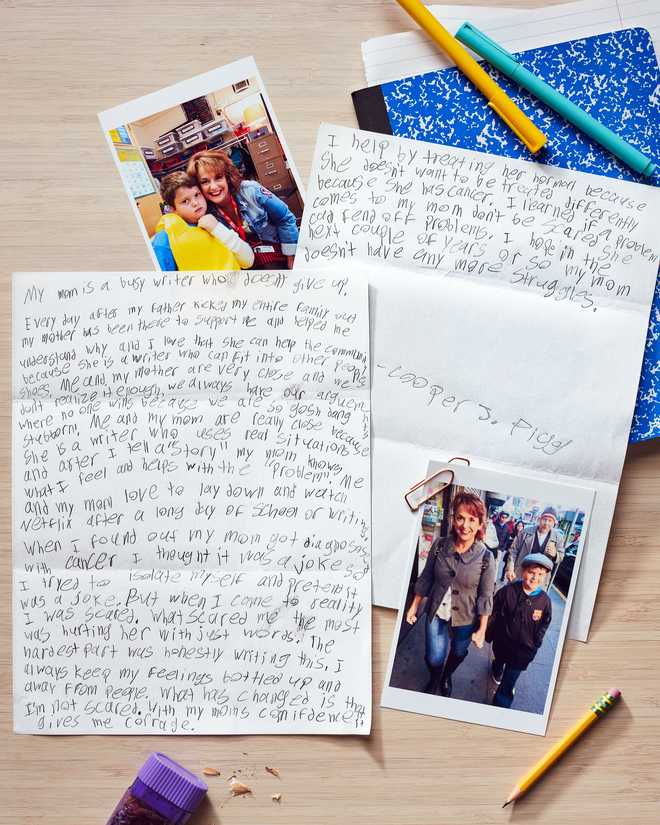 My mom is a busy writer who doesn't give up.
Every day after my father kicked my entire family out
my mother has been there to support me and helped me
understand why and I love that she can help the community
because she is a writer who can fit into other people
shoes. Me and my mother are very close and we
don't realize it enough, we always have our arguements
where no one wins because we are so gosh dang
stubborn. Me and my mom are really close because
she is a writer who uses real situations
and after I tell a "story" my mom knows
what I feel and helps with the "problem". Me
and my mom love to lay down and watch
Netflix after a long day of School or writing
When I found out my mom got diagnosed
with cancer I thought it was a joke so
I tried to isolate myself and pretend it
was a joke. But when I come to reality
I was scared. What scared me the most
was hurting her with just words. The
hardest part was honestly writing this. I
always keep my feelings bottled up and
away from people. What has changed is that
I'm not scared. With my moms comifdence it
gives me corrage.
I help by treating her normal because
She doesn't want to be treated differently
because she has cancer. I learned if a problem
comes to my mom don't be scared she
cad fend off problems. I hope in the
next couple of years or so my mom
doesn't have any more struggles.
-Cooper J. Pigg